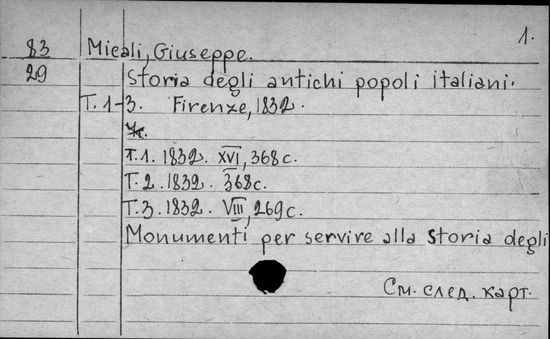 1.
83 Micali, Giuseppe.
29 Storia degli antichi popoli italiani.
T. 1-3. Firenze, 1832.
T. 1. 1832. XVI, 368 с.
T. 2. 1832. 368 с.
T. 3. 1832. VIII, 269 с.
Monumenti per servire alla storia degli
См. след. карт.